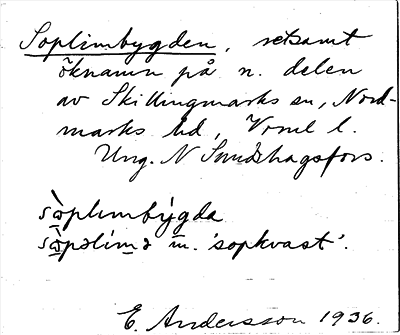 Soplimbygden, retsamt
öknamn på n. delen
av Skillingmarks sn, Nord-
marks hd, Vrml l.
Ung. N Sundshagsfors.
sò̱plımbýgda
sò̱pəlím̱ə m. 'sopkvast'.
E. Andersson 1936.